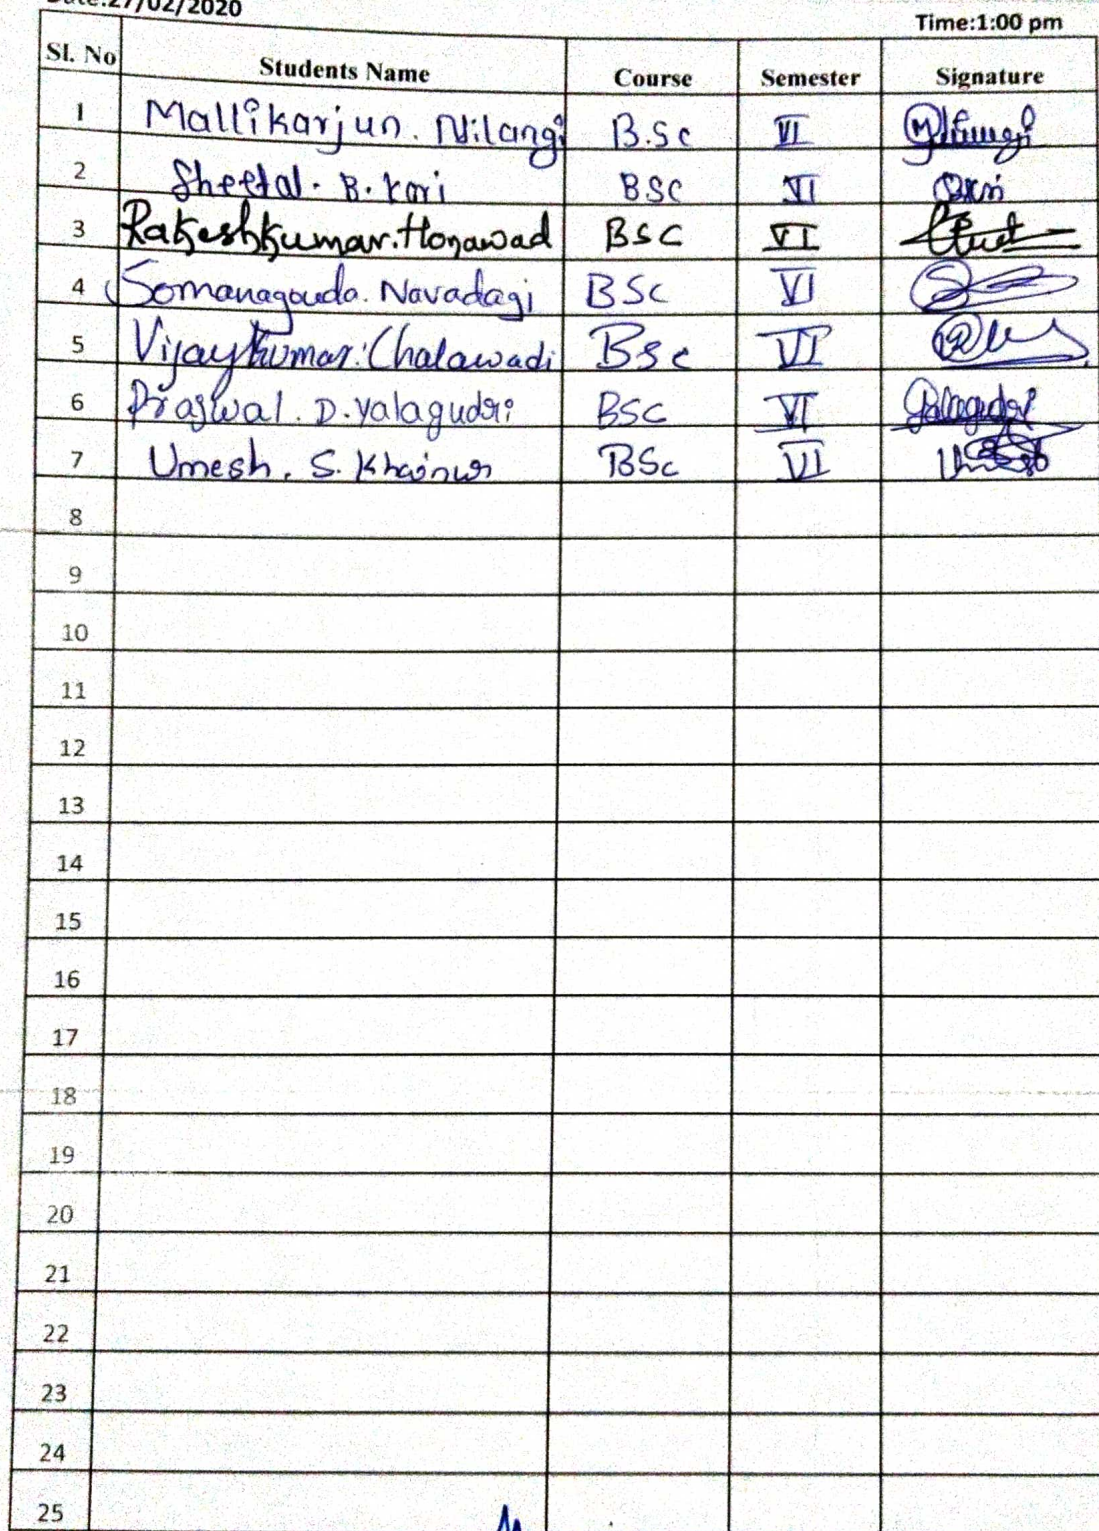 Date:27/02/2020
Time:1:00 pm
Sl. No Students Name Course Semester Signature
1 Mallikarjun. Nilangi B.Sc VI
2 Sheetal. B. Kori BSC VI
3 Rakeshkumar. Honawad BSC VI
4 Somanagouda. Navadagi BSc VI
5 Vijaykumar. Chalawadi BSc VI
6 Prajwal. D. Yalagudri BSC VI
7 Umesh. S. Khainur BSc VI
8
9
10
11
12
13
14
15
16
17
18
19
20
21
22
23
24
25